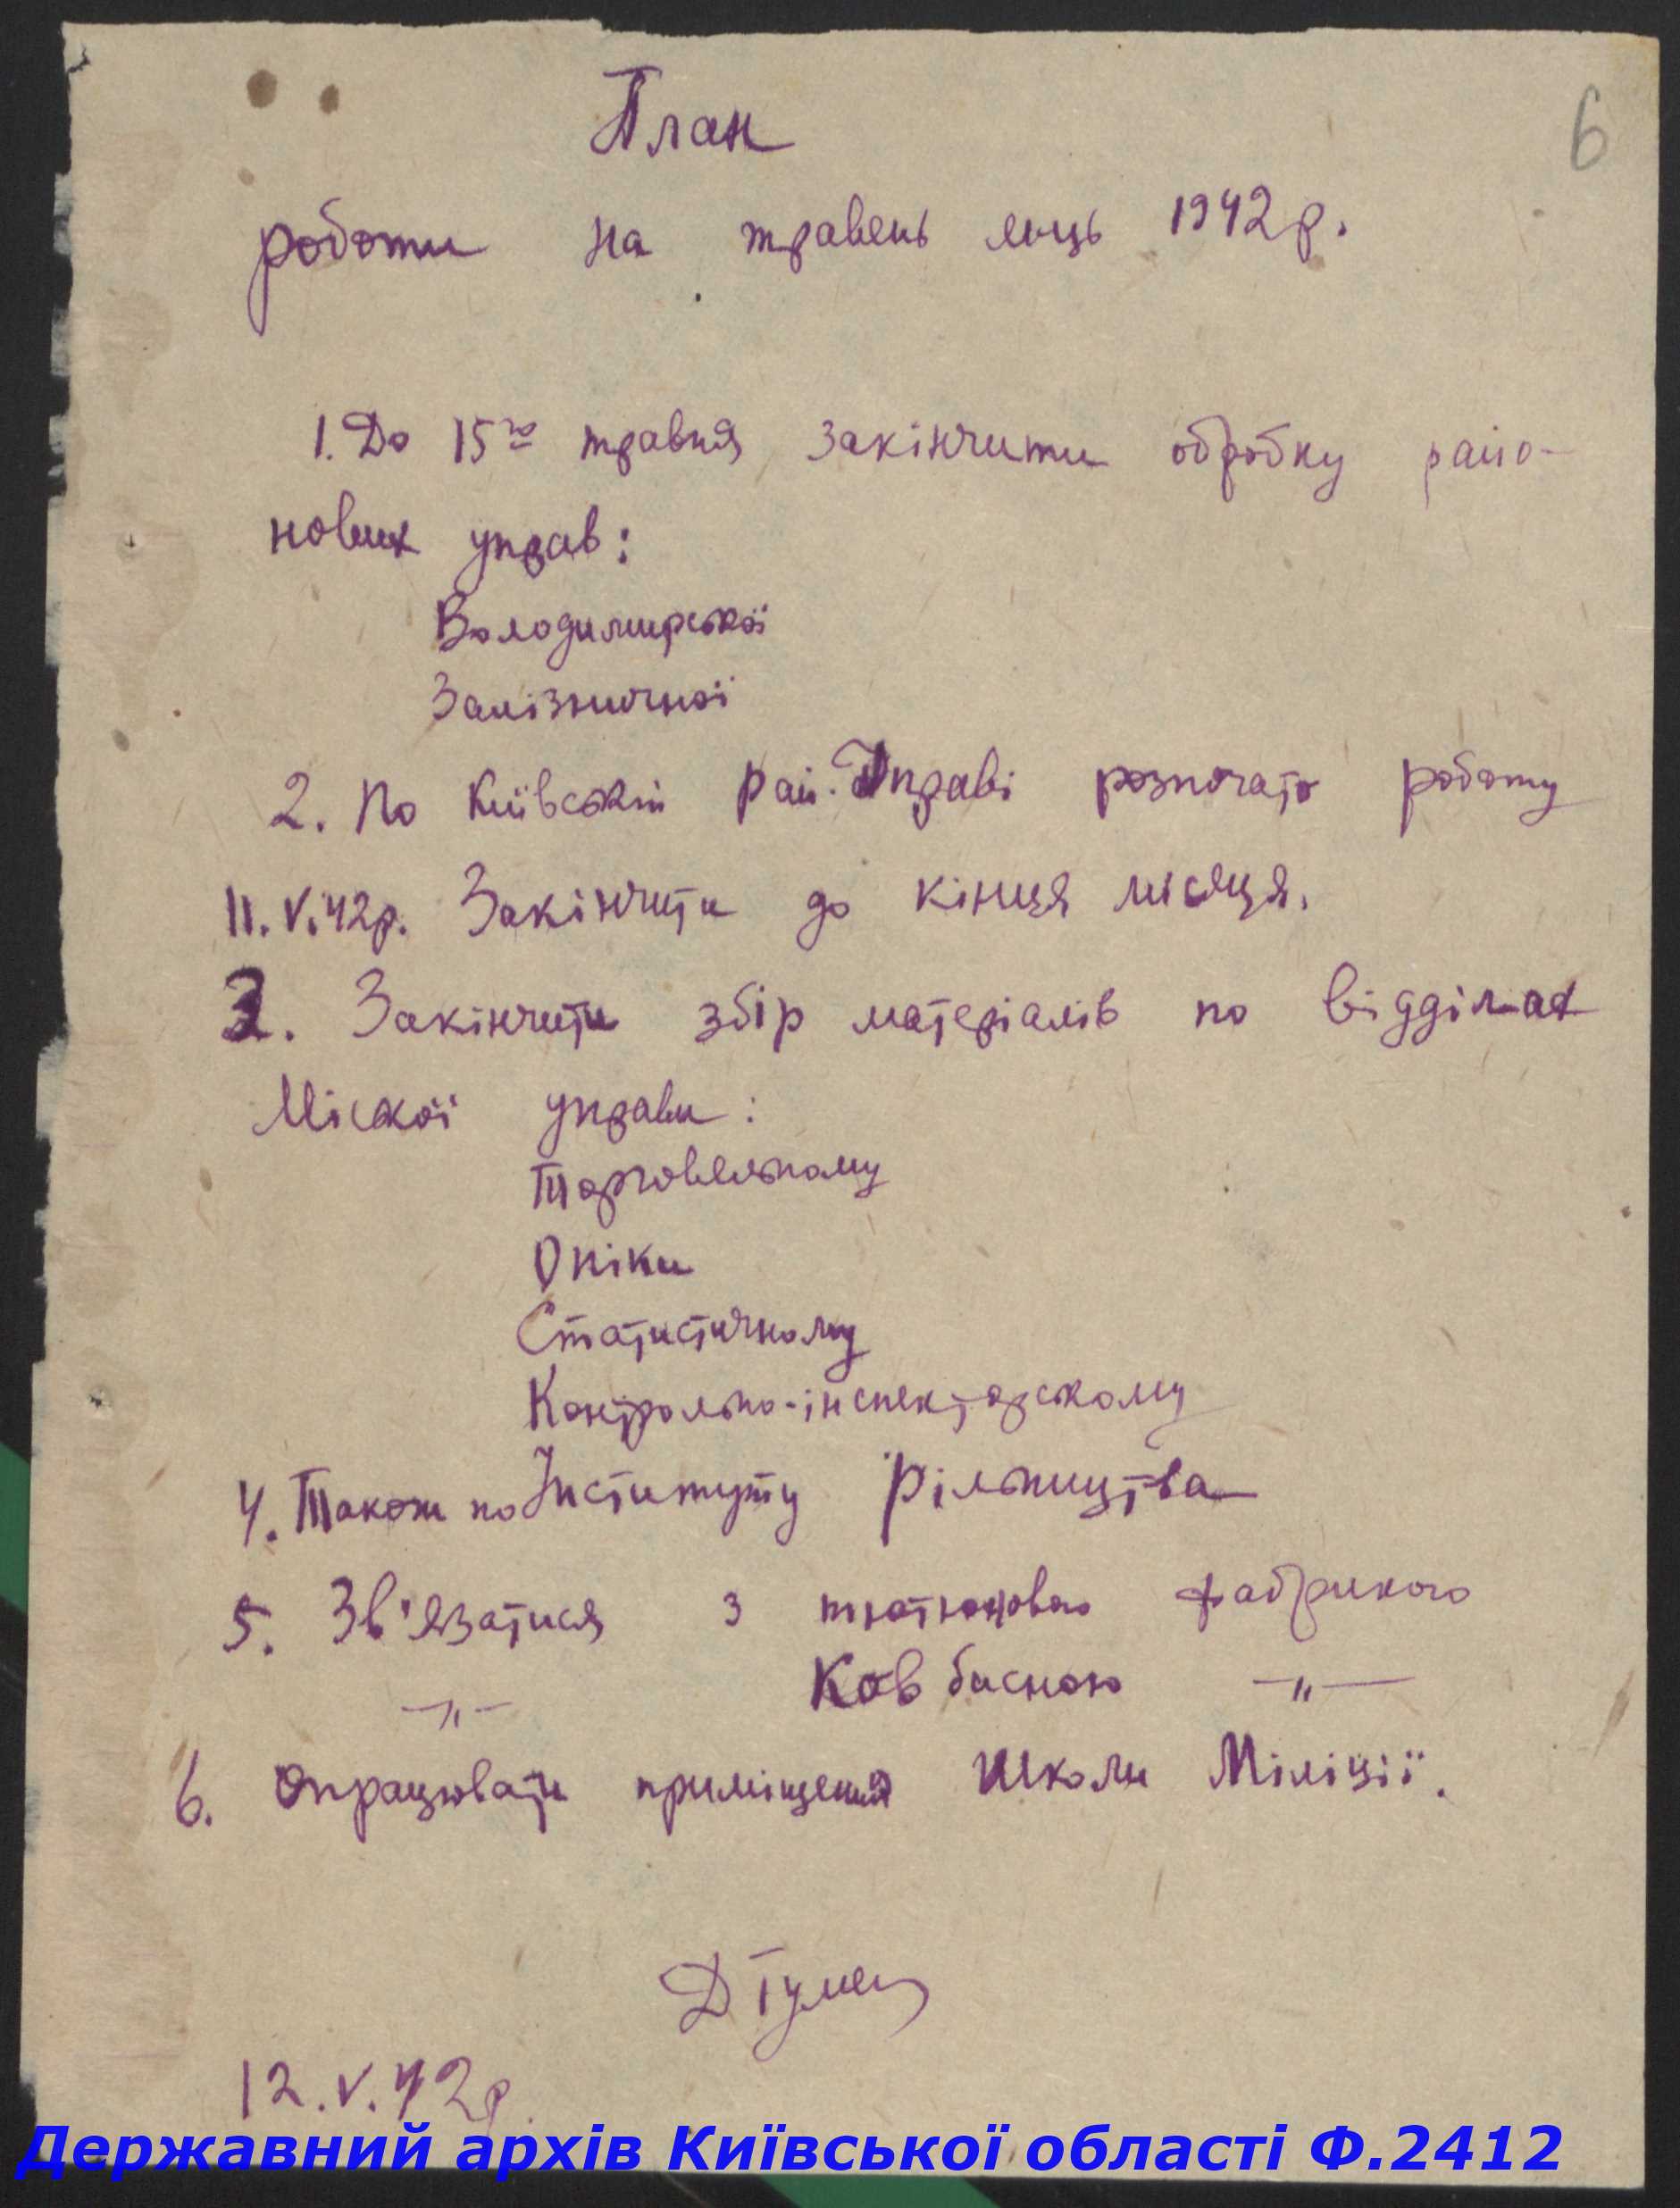 6
План
роботи на травень м-ць 1942 р.
1. До 15го травня закінчити обробку райо-
нових управ:
Володимирської
Залізничної
2. По Київській рай. Управі розпочати роботу
11. V. 42 р. Закінчити до кінця місяця.
3. Закінчити збір матеріалів по відділах
Міської управи:
Торговельному
Опіки
Статистичному
Контрольно-інспекторському
4. Також по Інституту Рільництва
5. Зв'язатися з тютюновою фабрикою
—"— Ковбасною —"—
6. Опрацювати приміщення Школи Міліції.
12. V. 42 р.
Державний архів Київської області Ф.2412